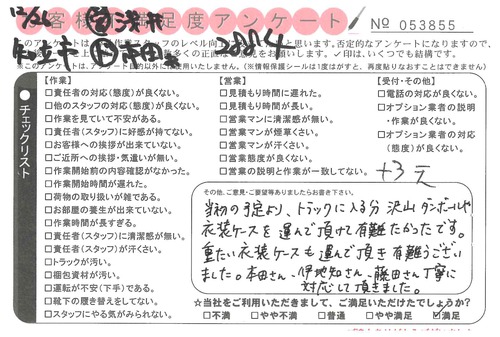 お客様満足度アンケート
No 053855
12/26
浅井
本田
【作業】
□責任者の対応(態度)が良くない。
□他のスタッフの対応(態度)が良くない。
□作業を見ていて不安がある。
□責任者(スタッフ)に好感が持てない。
□お客様への挨拶が出来ていない。
□ご近所への挨拶・気遣いが無い。
□作業開始前の内容確認がなかった。
□作業開始時間が遅れた。
□荷物の取り扱いが雑である。
□お部屋の養生が出来ていない。
□作業時間が長すぎる。
□責任者(スタッフ)に清潔感が無い。
□責任者(スタッフ)が汗くさい。
□トラックが汚い。
□梱包資材が汚い。
□運転が不安(下手)である。
□靴下の履き替えをしてない。
□スタッフにやる気がみられない。
【営業】
□見積もり時間に遅れた。
□見積もり時間が長い。
□営業マンに清潔感が無い。
□営業マンが煙草くさい。
□営業マンが汗くさい。
□営業態度が良くない。
□営業の説明と作業が一致してない。
【受付・その他】
□電話の対応が良くない。
□オプション業者の説明
・作業が良くない。
□オプション業者の対応
(態度)が良くない。
チェックリスト
その他、ご意見・ご要望等ありましたらお書き下さい。
当初の予定より、トラックに入る分 沢山 ダンボールや
衣装ケースを 運んで頂けて有難たかったです。
重たい衣装ケースも運んで頂き 有難うござい
ました。本田さん、伊地知さん、藤田さん丁寧に
対応して頂きました。
☆当社をご利用いただきまして、ご満足いただけたでしょうか?
□不満 □やや不満 □普通 □やや満足 ☑満足